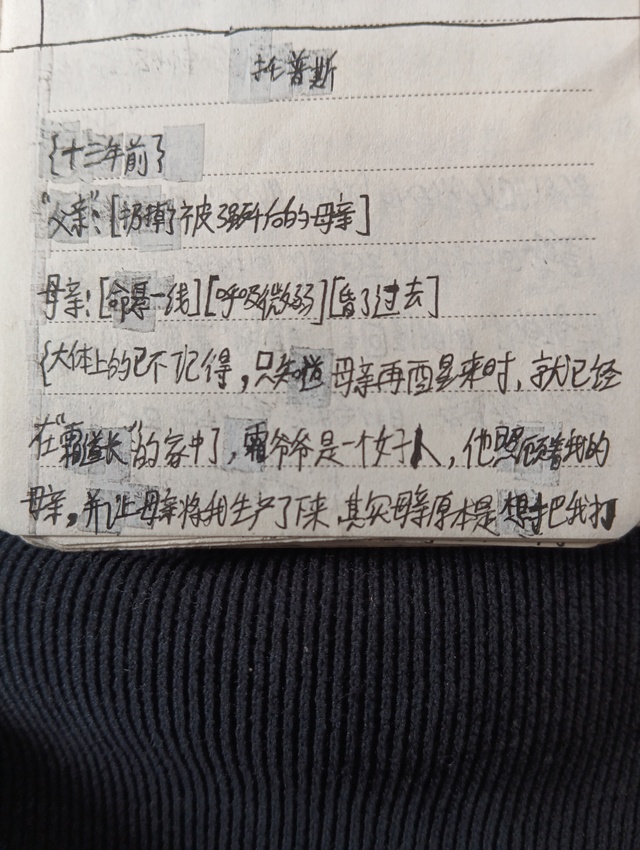 托普斯
{十三年前}
“父亲”：[扔掉了被强所给的母亲]
母亲：[命悬一线][呼吸微弱][昏了过去]
{大体上的已不记得，只知道母亲再酉星来时，就已经
在“霜道长”的家中了，霜爷爷是一个好人，他照顾着我的
母亲，并让母亲将我生产了下来，其实母亲原本是想要把我打